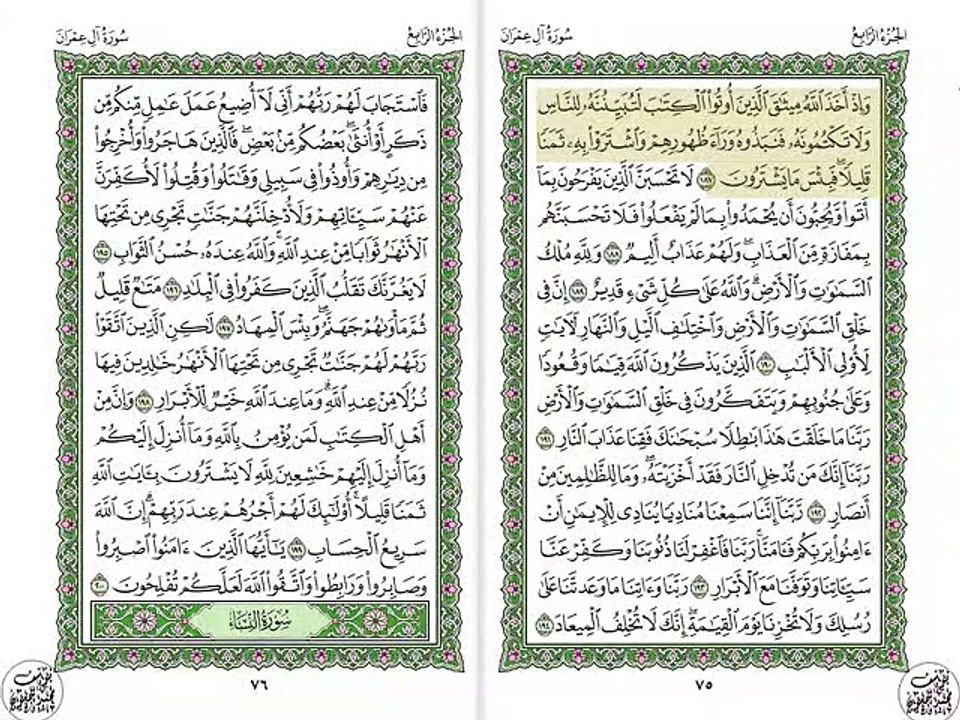 الجزء الرابع
سورة آل عمران
وَإِذْ أَخَذَ ٱللَّهُ مِيثَٰقَ ٱلَّذِينَ أُوتُوا۟ ٱلْكِتَٰبَ لَتُبَيِّنُنَّهُۥ لِلنَّاسِ
وَلَا تَكْتُمُونَهُۥ فَنَبَذُوهُ وَرَآءَ ظُهُورِهِمْ وَٱشْتَرَوْا۟ بِهِۦ ثَمَنًا
قَلِيلًا ۖ فَبِئْسَ مَا يَشْتَرُونَ ١٨٧ لَا تَحْسَبَنَّ ٱلَّذِينَ يَفْرَحُونَ بِمَآ
أَتَوا۟ وَّيُحِبُّونَ أَن يُحْمَدُوا۟ بِمَا لَمْ يَفْعَلُوا۟ فَلَا تَحْسَبَنَّهُم
بِمَفَازَةٍ مِّنَ ٱلْعَذَابِ ۖ وَلَهُمْ عَذَابٌ أَلِيمٌ ١٨٨ وَلِلَّهِ مُلْكُ
ٱلسَّمَٰوَٰتِ وَٱلْأَرْضِ ۗ وَٱللَّهُ عَلَىٰ كُلِّ شَىْءٍ قَدِيرٌ ١٨٩ إِنَّ فِى
خَلْقِ ٱلسَّمَٰوَٰتِ وَٱلْأَرْضِ وَٱخْتِلَٰفِ ٱلَّيْلِ وَٱلنَّهَارِ لَءَايَٰتٍ
لِّأُو۟لِى ٱلْأَلْبَٰبِ ١٩٠ ٱلَّذِينَ يَذْكُرُونَ ٱللَّهَ قِيَٰمًا وَقُعُودًا
وَعَلَىٰ جُنُوبِهِمْ وَيَتَفَكَّرُونَ فِى خَلْقِ ٱلسَّمَٰوَٰتِ وَٱلْأَرْضِ
رَبَّنَا مَا خَلَقْتَ هَٰذَا بَٰطِلًا سُبْحَٰنَكَ فَقِنَا عَذَابَ ٱلنَّارِ ١٩١
رَبَّنَآ إِنَّكَ مَن تُدْخِلِ ٱلنَّارَ فَقَدْ أَخْزَيْتَهُۥ ۖ وَمَا لِلظَّٰلِمِينَ مِنْ
أَنصَارٍ ١٩٢ رَّبَّنَآ إِنَّنَا سَمِعْنَا مُنَادِيًا يُنَادِى لِلْإِيمَٰنِ أَنْ
ءَامِنُوا۟ بِرَبِّكُمْ فَـَٔامَنَّا ۚ رَبَّنَا فَٱغْفِرْ لَنَا ذُنُوبَنَا وَكَفِّرْ عَنَّا
سَيِّـَٔاتِنَا وَتَوَفَّنَا مَعَ ٱلْأَبْرَارِ ١٩٣ رَبَّنَا وَءَاتِنَا مَا وَعَدتَّنَا عَلَىٰ
رُسُلِكَ وَلَا تُخْزِنَا يَوْمَ ٱلْقِيَٰمَةِ ۗ إِنَّكَ لَا تُخْلِفُ ٱلْمِيعَادَ ١٩٤
٧٥
الجزء الرابع
سورة آل عمران
فَٱسْتَجَابَ لَهُمْ رَبُّهُمْ أَنِّى لَآ أُضِيعُ عَمَلَ عَٰمِلٍ مِّنكُم مِّن
ذَكَرٍ أَوْ أُنثَىٰ ۖ بَعْضُكُم مِّنۢ بَعْضٍ ۖ فَٱلَّذِينَ هَاجَرُوا۟ وَأُخْرِجُوا۟
مِن دِيَٰرِهِمْ وَأُوذُوا۟ فِى سَبِيلِى وَقَٰتَلُوا۟ وَقُتِلُوا۟ لَأُكَفِّرَنَّ
عَنْهُمْ سَيِّـَٔاتِهِمْ وَلَأُدْخِلَنَّهُمْ جَنَّٰتٍ تَجْرِى مِن تَحْتِهَا
ٱلْأَنْهَٰرُ ثَوَابًا مِّنْ عِندِ ٱللَّهِ ۗ وَٱللَّهُ عِندَهُۥ حُسْنُ ٱلثَّوَابِ ١٩٥
لَا يَغُرَّنَّكَ تَقَلُّبُ ٱلَّذِينَ كَفَرُوا۟ فِى ٱلْبِلَٰدِ ١٩٦ مَتَٰعٌ قَلِيلٌ
ثُمَّ مَأْوَىٰهُمْ جَهَنَّمُ ۚ وَبِئْسَ ٱلْمِهَادُ ١٩٧ لَٰكِنِ ٱلَّذِينَ ٱتَّقَوْا۟
رَبَّهُمْ لَهُمْ جَنَّٰتٌ تَجْرِى مِن تَحْتِهَا ٱلْأَنْهَٰرُ خَٰلِدِينَ فِيهَا
نُزُلًا مِّنْ عِندِ ٱللَّهِ ۗ وَمَا عِندَ ٱللَّهِ خَيْرٌ لِّلْأَبْرَارِ ١٩٨ وَإِنَّ مِنْ
أَهْلِ ٱلْكِتَٰبِ لَمَن يُؤْمِنُ بِٱللَّهِ وَمَآ أُنزِلَ إِلَيْكُمْ
وَمَآ أُنزِلَ إِلَيْهِمْ خَٰشِعِينَ لِلَّهِ لَا يَشْتَرُونَ بِـَٔايَٰتِ ٱللَّهِ
ثَمَنًا قَلِيلًا ۗ أُو۟لَٰٓئِكَ لَهُمْ أَجْرُهُمْ عِندَ رَبِّهِمْ ۗ إِنَّ ٱللَّهَ
سَرِيعُ ٱلْحِسَابِ ١٩٩ يَٰٓأَيُّهَا ٱلَّذِينَ ءَامَنُوا۟ ٱصْبِرُوا۟
وَصَابِرُوا۟ وَرَابِطُوا۟ وَٱتَّقُوا۟ ٱللَّهَ لَعَلَّكُمْ تُفْلِحُونَ ٢٠٠
سورة النساء
٧٦